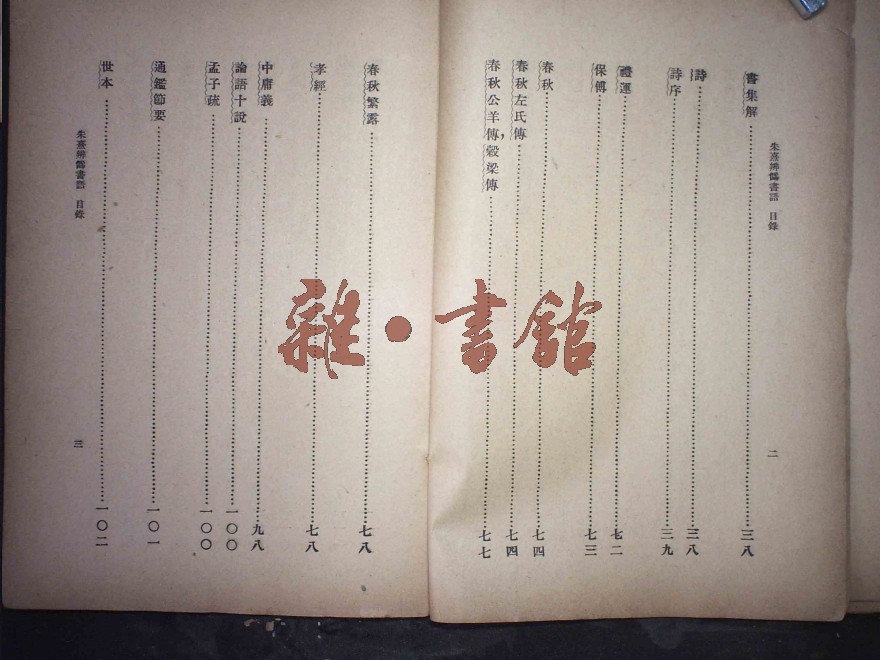 朱熹辨僞書語 目錄
書集解……三八
詩……三八
詩序……三九
禮運……七二
保傅……七三
春秋……七四
春秋左氏傳……七四
春秋公羊傳，穀梁傳……七七
二
春秋繁露……七八
孝經……七八
中庸義……九八
論語十說……一〇〇
孟子疏……一〇〇
通鑑節要……一〇一
世本……一〇二
朱熹辨僞書語 目錄
三
雜·書館